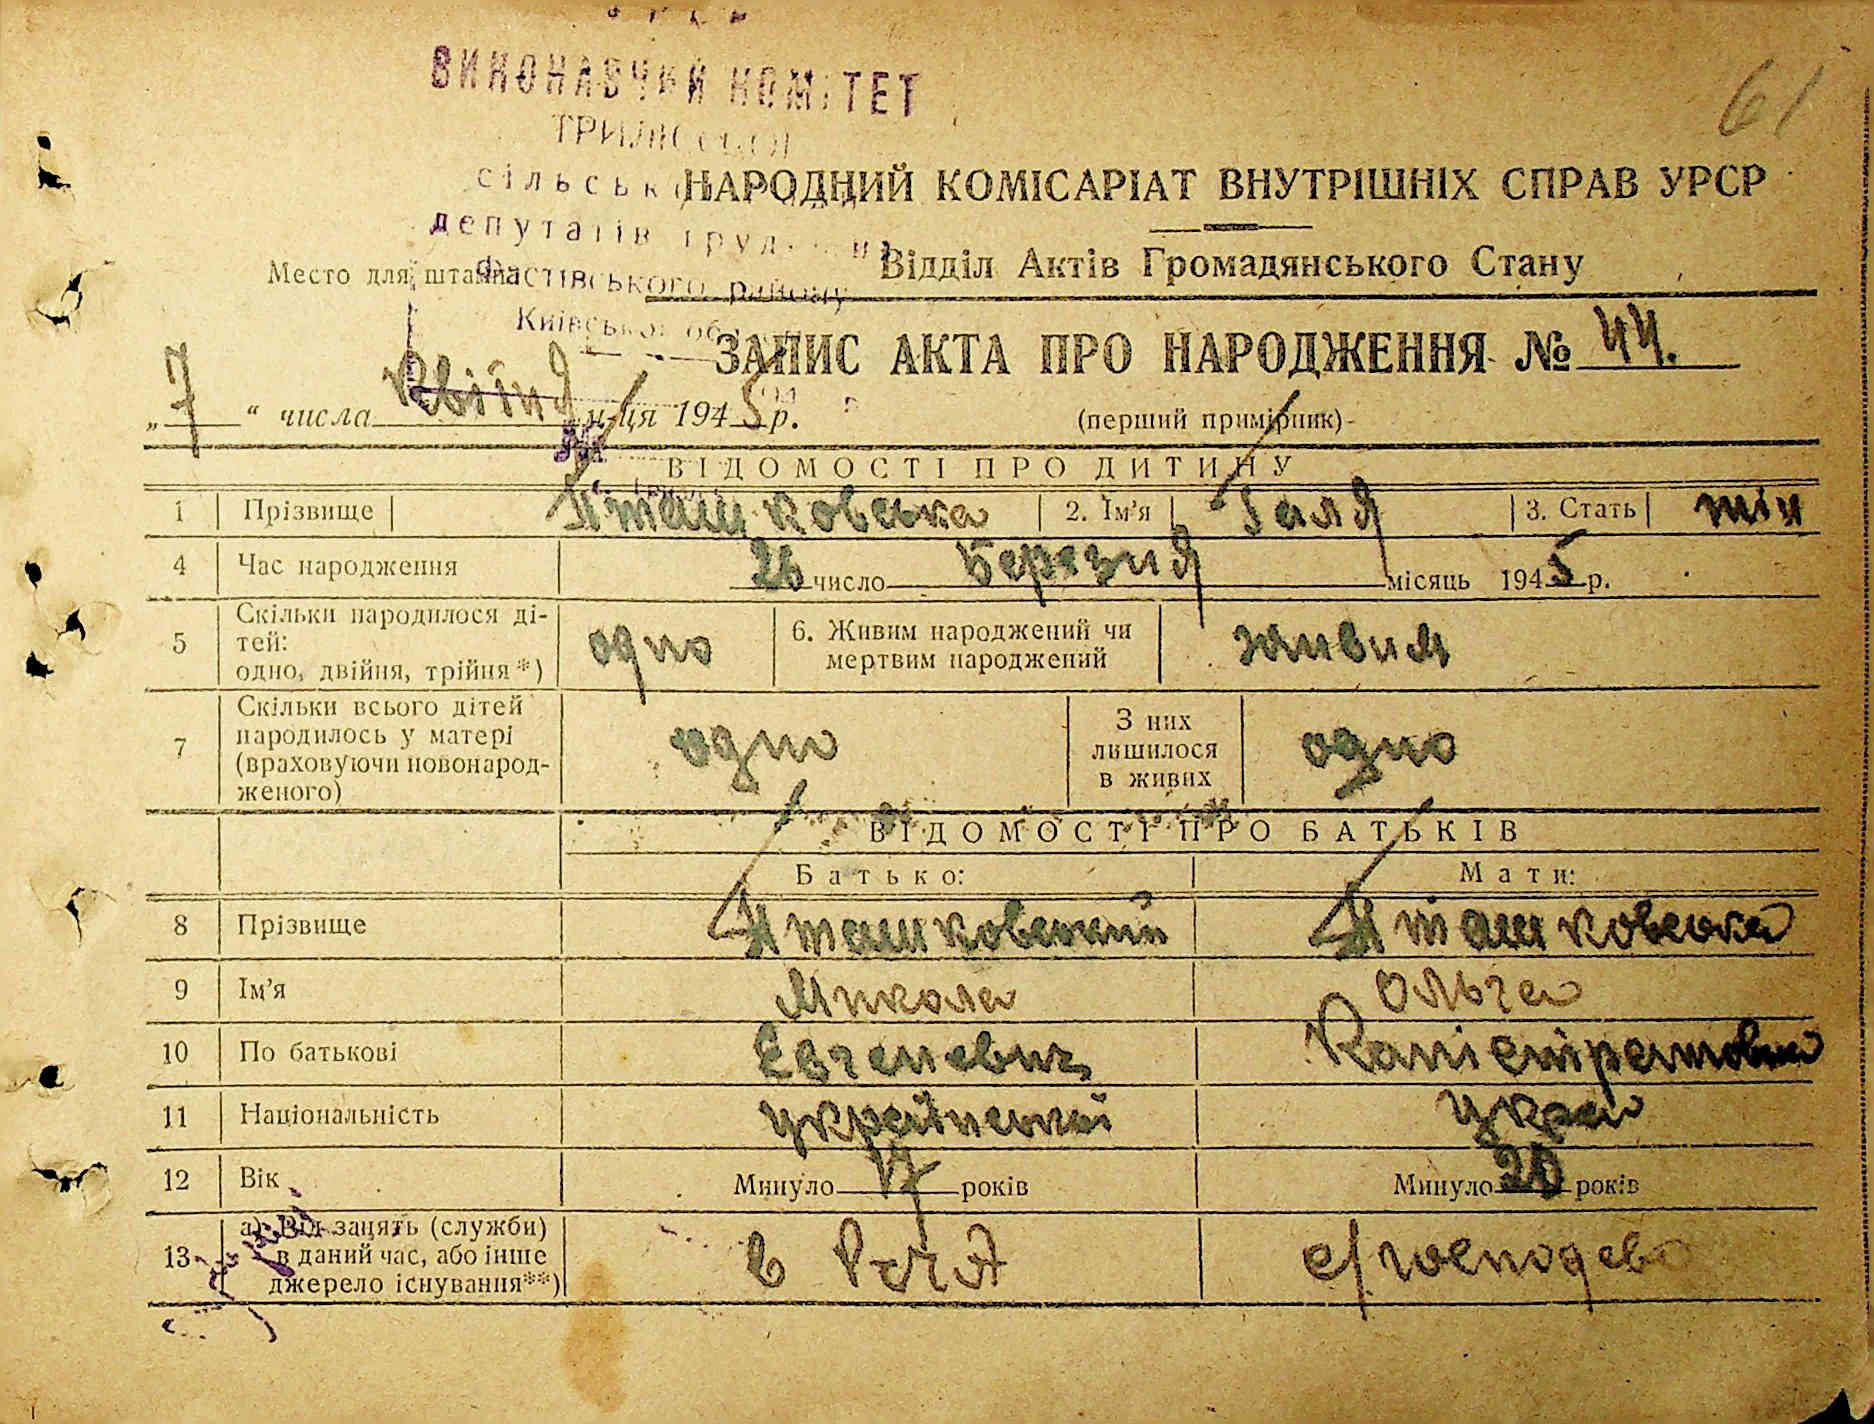 61
ВИКОНАВЧИЙ КОМІТЕТ
сільської
НАРОДНИЙ КОМІСАРІАТ ВНУТРІШНІХ СПРАВ УРСР
депутатів труд
Відділ Актів Громадянського Стану
Место для штампа
Фастівського району
Київської обл
ЗАПИС АКТА ПРО НАРОДЖЕННЯ № 44.
„ 7 “ числа Квітня м-ця 1945 р. (перший примірник)
ВІДОМОСТІ ПРО ДИТИНУ
1 Прізвище Пташковська 2. Ім’я Галя 3. Стать жін
4 Час народження 26 число Березня місяць 1945 р.
5 Скільки народилося ді-
тей:
одно, двійня, трійня*) одно 6. Живим народжений чи
мертвим народжений живим
7 Скільки всього дітей
народилось у матері
(враховуючи новонарод-
женого) одно З них
лишилося
в живих одно
ВІДОМОСТІ ПРО БАТЬКІВ
Батько: Мати:
8 Прізвище Пташковський Пташковська
9 Ім’я Микола Ольга
10 По батькові Євгеневич
11 Національність Укра
12 Вік Минуло 17 років Минуло 20 років
13 а) Від занять (служби)
в даний час, або інше
джерело існування**) в